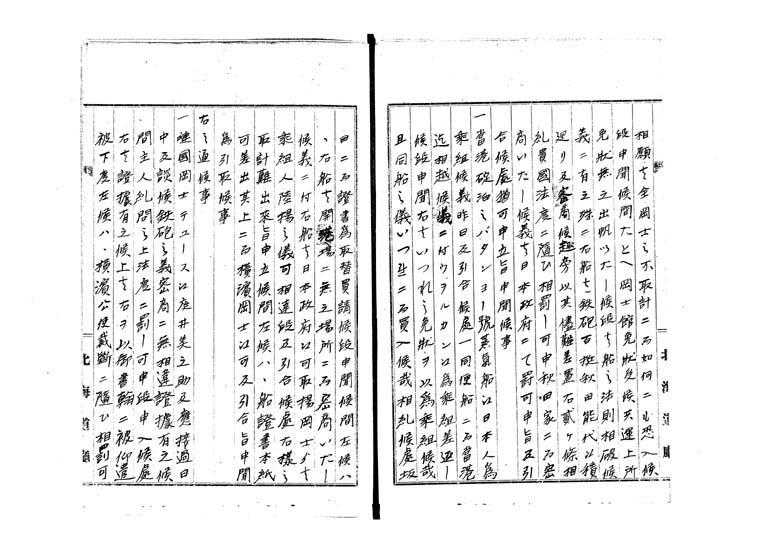 相願ゟ全岡士之不取計ニ而如何ニも恐入候
段申聞候間たとへ岡士館免状免候共運上所
免状無之出帆いたし候段者船之法則相破候
義ニ有之殊ニ右船ゟ鉄砲百挺秋田能代江積
送り及密商候趣旁以其儘難差置右貳ヶ條相
糺貴國法度ニ隨ひ相罰し可申秋田家ニ而密
商いたし候義ゟ日本政府ニて罰可申旨及引
合候處猶可申立旨申聞候事
一當港碇泊之バタンヨー號蒸氣船江日本人為
乗組候義昨日及引合候處一同理船ニ而當港
迄相越候義ニ付ヲルカン江為乗組差遣し
候段申聞右ゟいつれ之免状ヲ以為乗組候哉
且同船之儀いつ比ニ而買入候哉相糺候處坂
田ニ而證書為取替買請候段申聞候間左候ハ
、右船ゟ開港場ニ無之場所ニ而密商いたし
候義ニ付右船ゟ日本政府江可取揚岡士ゟ
乗組人陸揚之儀可相達段及引合候處右様之
取計難出來旨申立候間左候ハ、船證書本紙
可差出其上ニ而横濱岡士江可及引合旨申聞
為引取候事
右之通候事
一嗹國岡士テュース江座井美之助及應接過日
中及談候鉄砲之義密商ニ無相違證據有之候
間主人糺問之上法度ニ罰し可申段申入候處
右ゟ證據有之候上ゟ右ヲ以御書翰ニ被仰遣
被下度左候ハ、横濱公使裁斷ニ隨ひ相罰可
北海道廳
北海道廳